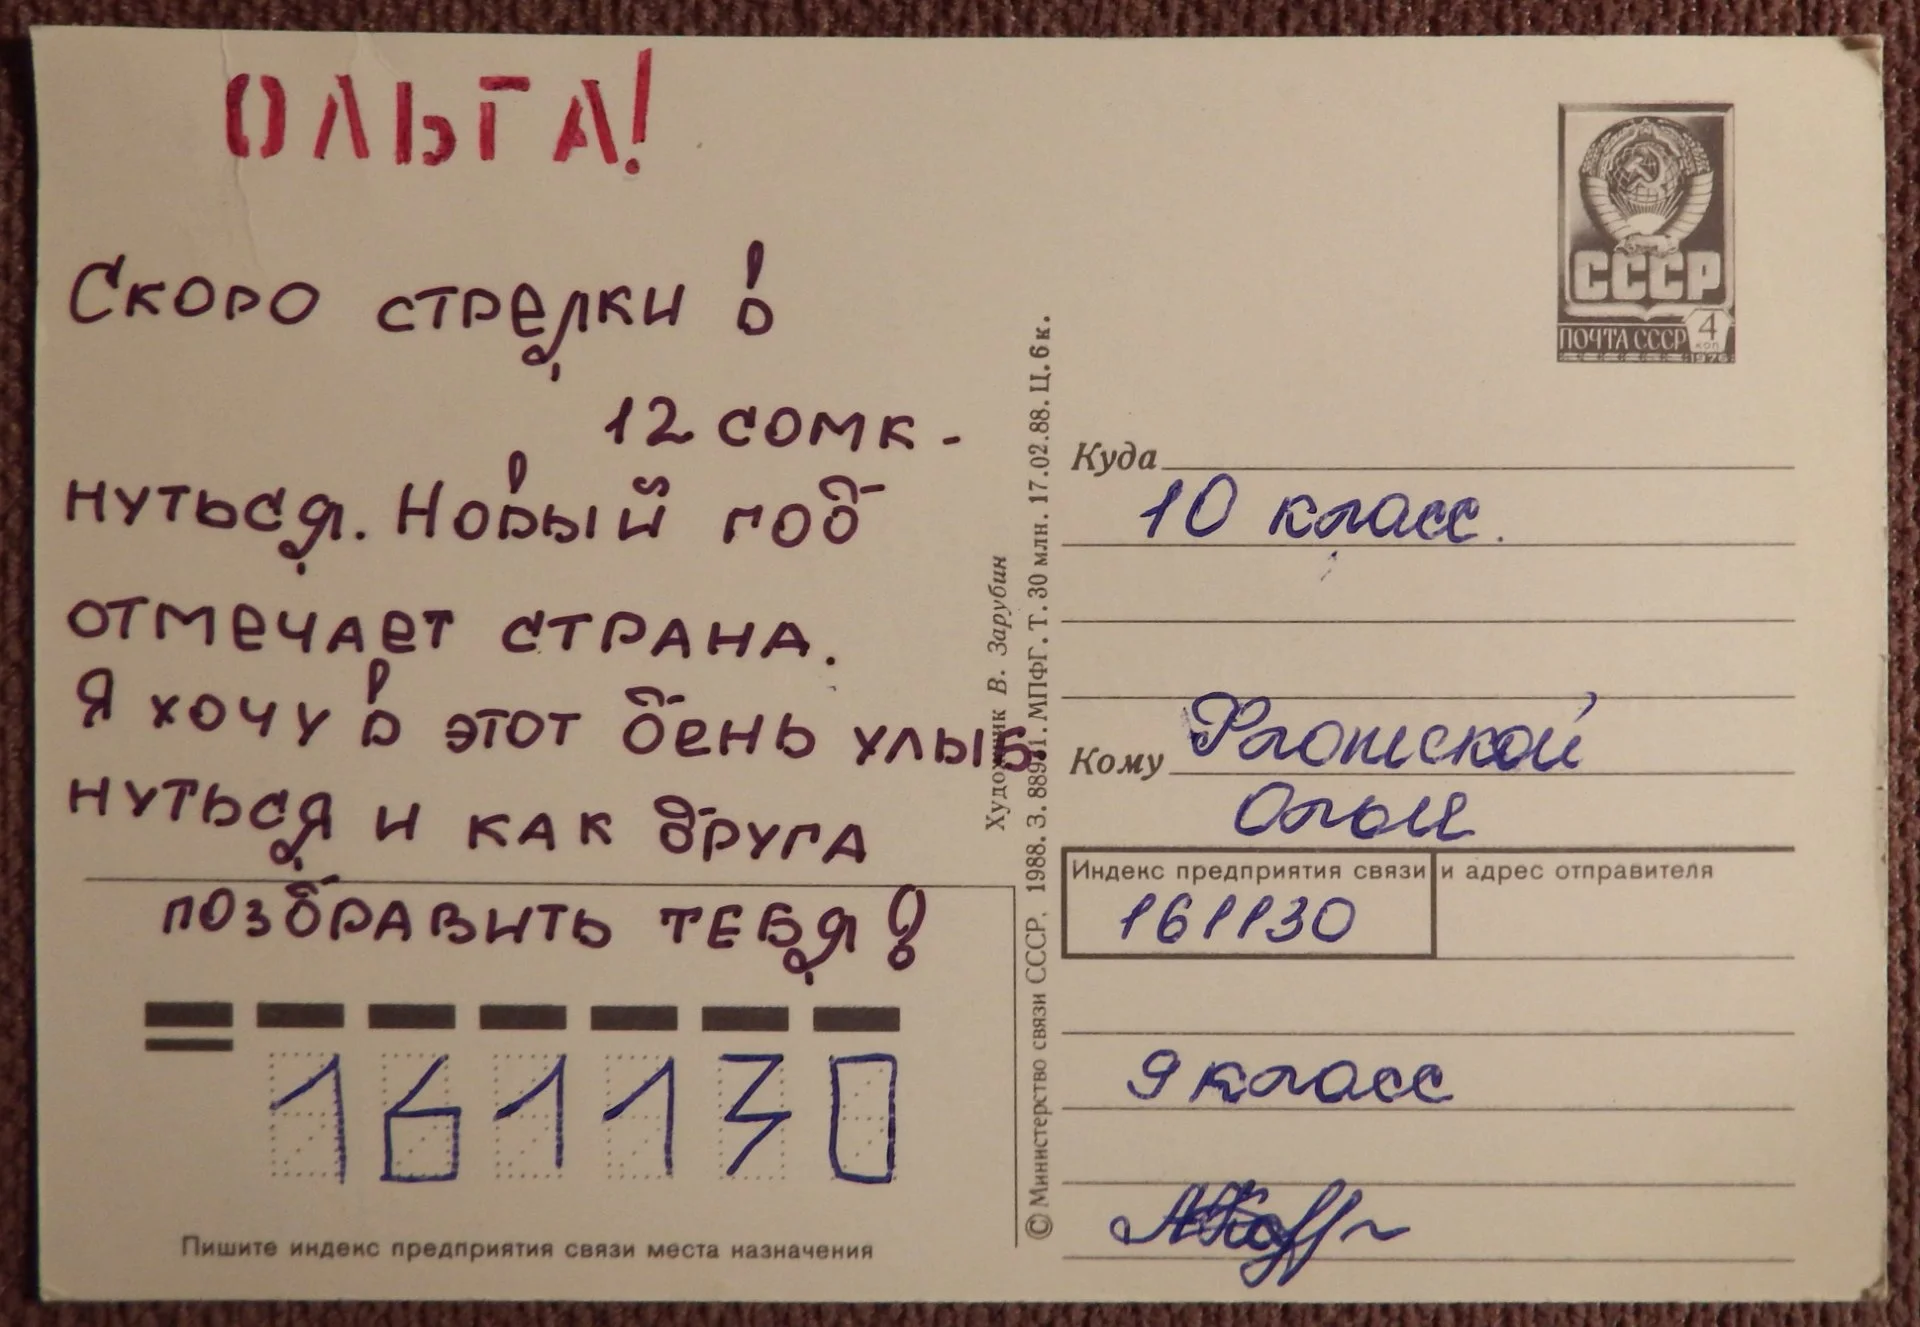 ОЛЬГА!
Скоро стрелки в
12 сомк-
нуться. Новый год
отмечает страна.
Я хочу в этот день улыб-
нуться и как друга
поздравить тебя!
Пишите индекс предприятия связи места назначения
161130
Художник В. Зарубин
© Министерство связи СССР. 1988. З. 88981. МПФГ. Т. 30 млн. 17.02.88. Ц. 6 к.
СССР
ПОЧТА СССР 4 коп
1976
Куда
10 класс.
Кому
Ольги
Индекс предприятия связи и адрес отправителя
161130
9 класс